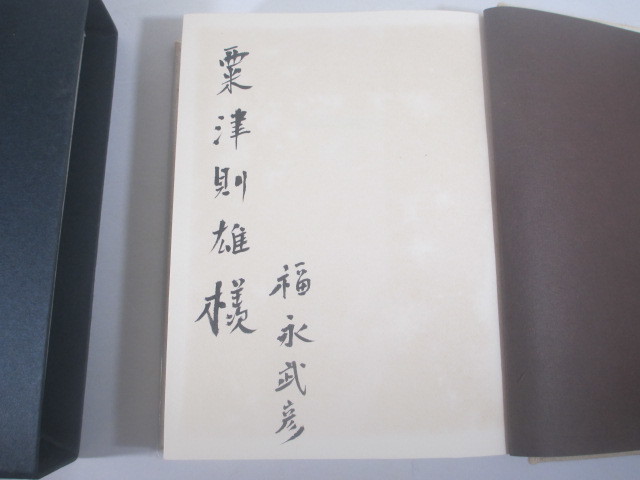 粟津則雄様
福永武彦